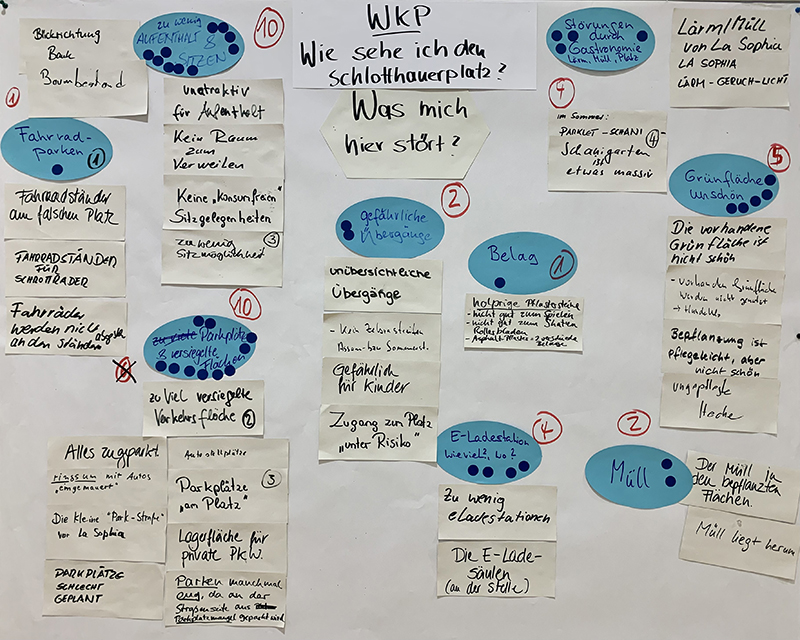 WKP
Wie sehe ich den
Schlotthauerplatz?
Was mich
hier stört?
Blickrichtung
Bank
Baumbestand
zu wenig
AUFENTHALT &
SITZEN
10
unattraktiv
für Aufenthalt
Kein Raum
zum
Verweilen
Keine „konsumfreien"
Sitzgelegenheiten
zu wenig
Sitzmöglichkeit
3
1
Fahrrad-
parken
1
Fahrradständer
am falschen Platz
FAHRRADSTÄNDER
FÜR
SCHROTTRÄDER
Fahrräder
werden nicht
an den Ständern abgestellt
10
zu viele Parkplätze
& versiegelte
Flächen
8
zu viel versiegelte
Verkehrsfläche
2
Alles zugparkt
ringsum mit Autos
„eingemauert"
Die kleine "Park-Straße"
vor La Sophia
PARKPLÄTZE
SCHLECHT
GEPLANT
Autostellplätze
Parkplätze
„am Platz"
3
Lagerfläche für
private PKW.
Parken manchmal
eng, da an der
Straßenseite aus
Parkplatzmangel geparkt wird
2
gefährliche
Übergänge
unübersichtliche
Übergänge
- Kein Zebrastreifen
Gefährlich
für Kinder
Zugang zum Platz
„unter Risiko"
Belag
1
holprige Pflastersteine
- nicht gut zum Spielen
- nicht gut zum Skaten
Rollerbladen
4
E-Ladestation
wieviel?, wo?
Zu wenig
eLadestationen
Die E-Lade-
säulen
(an der Stelle)
Störungen
durch
Gastronomie
Lärm, Müll, Platz
4
im Sommer:
PARKLET-SCHANI
Schanigarten
ist
etwas massiv
4
Lärm/Müll
von La Sophia
LA SOPHIA
LÄRM-GERUCH-LICHT
5
Grünfläche
unschön
Die vorhandene
Grünfläche ist
nicht schön
- vorhanden Grünfläche
werden nicht genutzt
→ Hundeklo,
Bepflanzung ist
pflegeleicht, aber
nicht schön
ungepflegte
Fläche
2
Müll
Der Müll in
den bepflanzten
Flächen.
Müll liegt herum